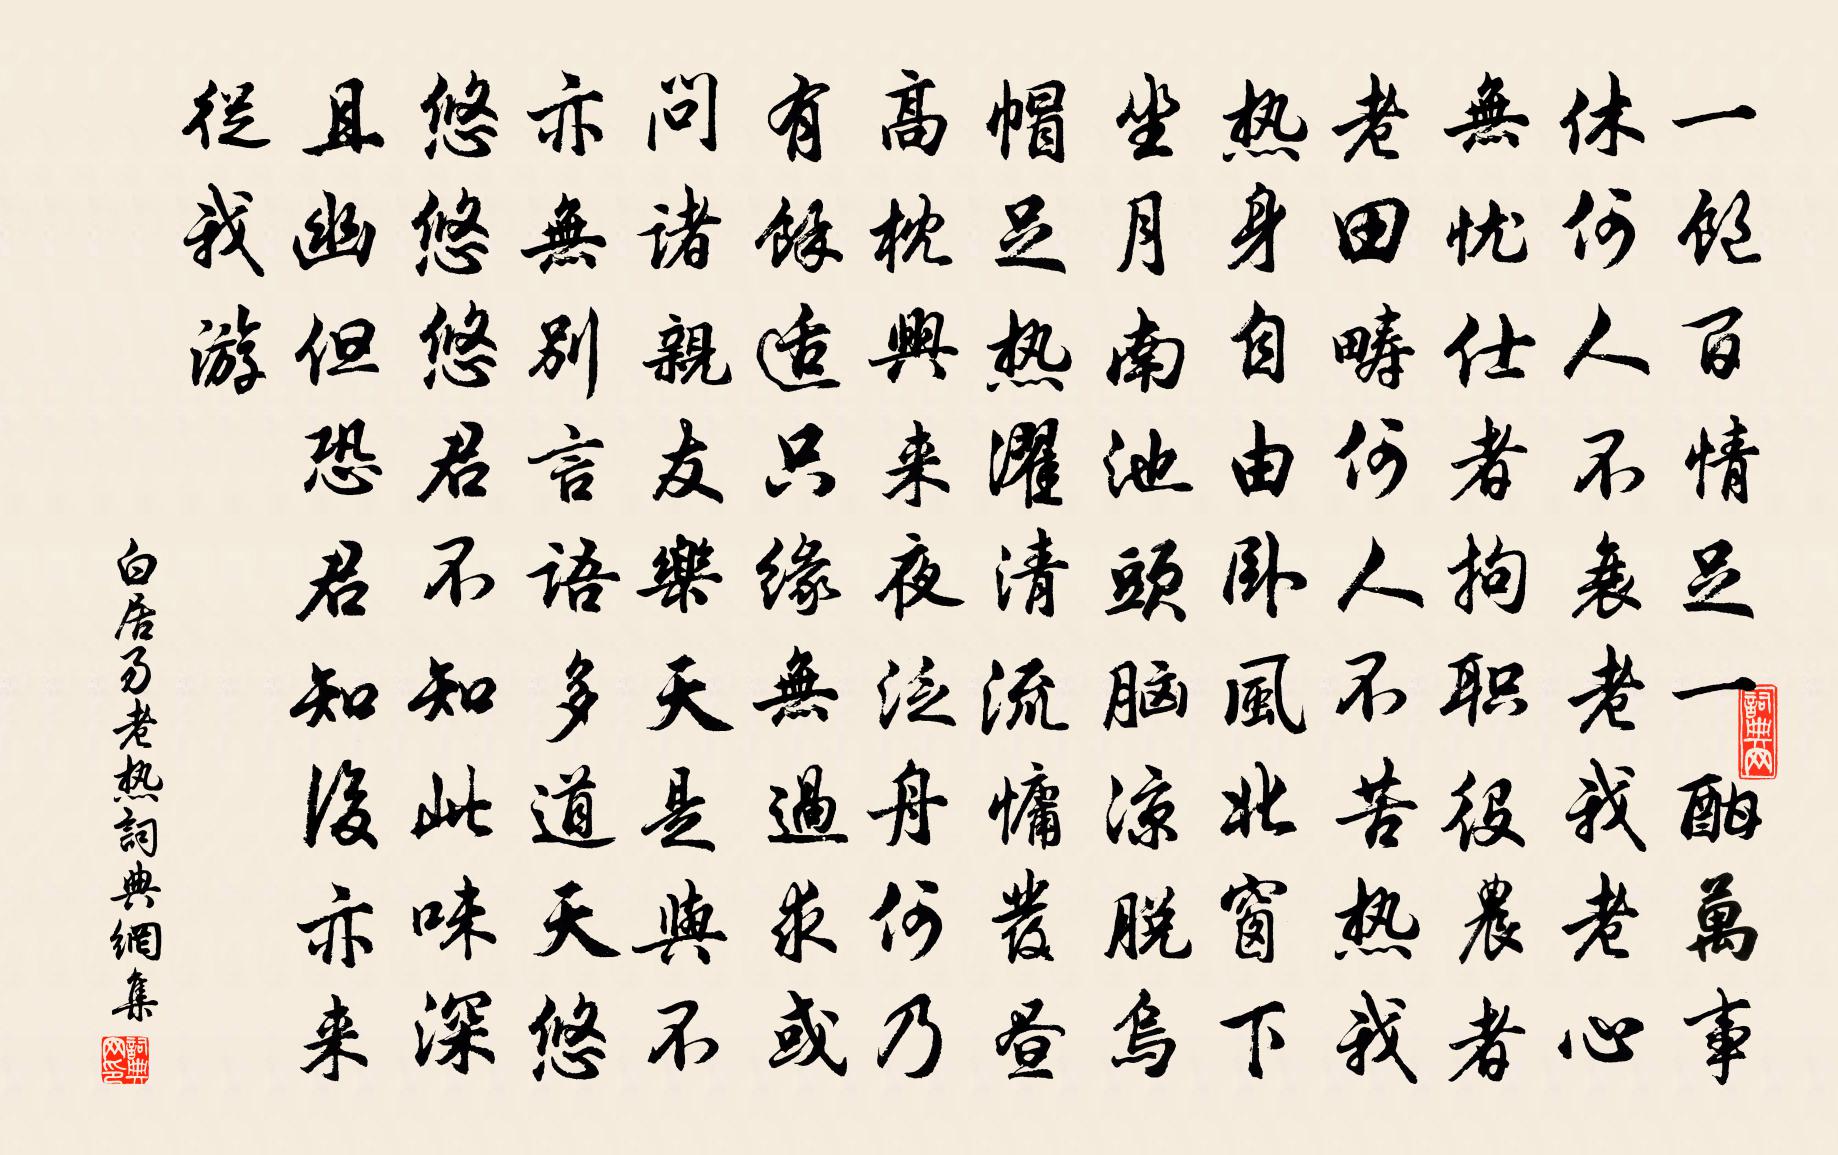 一飽百情足一酣萬事
休何人不衰老我老心
無忧仕者拘职役農者
老田畴何人不苦热我
热身自由卧風北窗下
坐月南池頭脑凉脱烏
帽足热濯清流慵發昼
高枕興来夜泛舟何乃
有餘适只缘無過求或
问诸親友樂天是與不
亦無别言語多道天悠
悠悠悠君不知此味深
且幽但恐君知後亦来
從我游
白居易老热詞典網集
詞典网
詞典网印